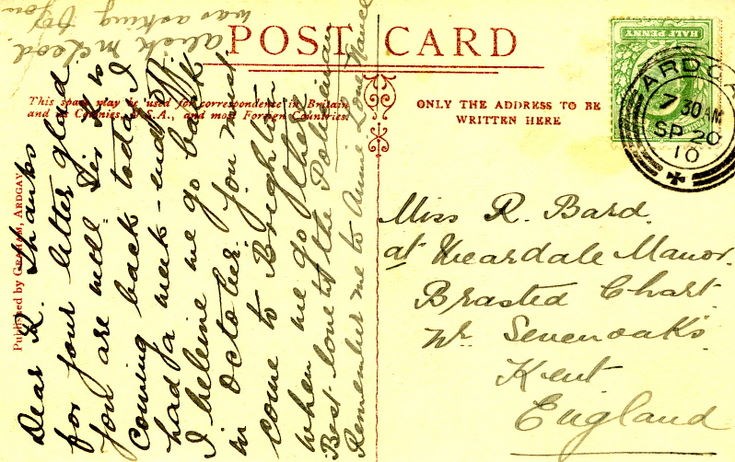 POST CARD
This space may be used for correspondence in Britain
and its Colonies, U.S.A., and most Foreign Countries.
ONLY THE ADDRESS TO BE
WRITTEN HERE
HALF PENNY
ARDGA
7 30 AM
SP 20
10
Published by GRAHAM, ARDGAY
Miss R. Bard.
at Weardale Manor.
Brasted Chart.
Nr Sevenoaks.
Kent
England
Dear R. Thanks
for your letter glad
you are well. Sir is to
coming back today I
had a week-end
I beleive we go back
in October. You must
come to Brighton
when we go there
Best love to the Policeman
Remember me to Annie Love
alick McLeod
was asking for
you